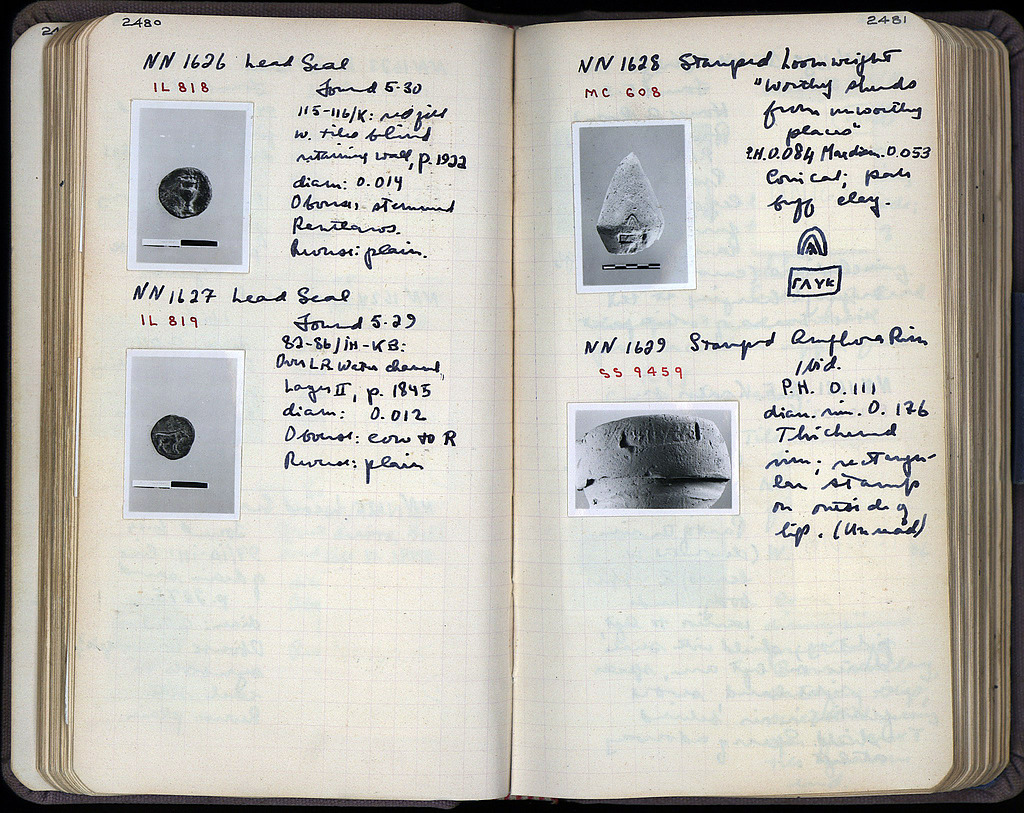 24
2480
NN 1626 Lead Seal
IL 818
Found 5-30
115-116/K: red fill
w. tiles behind
retaining wall, p. 1922
diam: 0.014
Obverse: stemmed
Kantharos.
Reverse: plain.
NN 1627 Lead Seal
IL 819
Found 5-29
82-86/ΙΗ-ΚΒ:
Over L.R. Water channel,
Layer II, p. 1845
diam: 0.012
Obverse: cow to R
Reverse: plain
2481
NN 1628 Stamped Loomweight
MC 608
"Worthy sherds
from unworthy
places"
P.H. 0.084 Max diam. 0.053
Conical; pale
buff clay.
ΓΛΥΚ
NN 1629 Stamped Amphora Rim
SS 9459
Ibid.
P.H. 0.111
diam. rim. 0.176
Thickened
rim; rectangu-
lar stamp
on outside of
lip. (Unread)